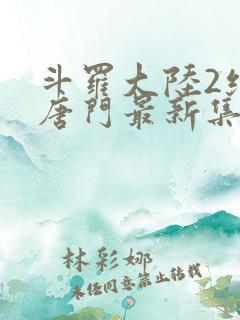 斗羅大陸2
唐門最新集
林彩娜
未经同意禁止转载